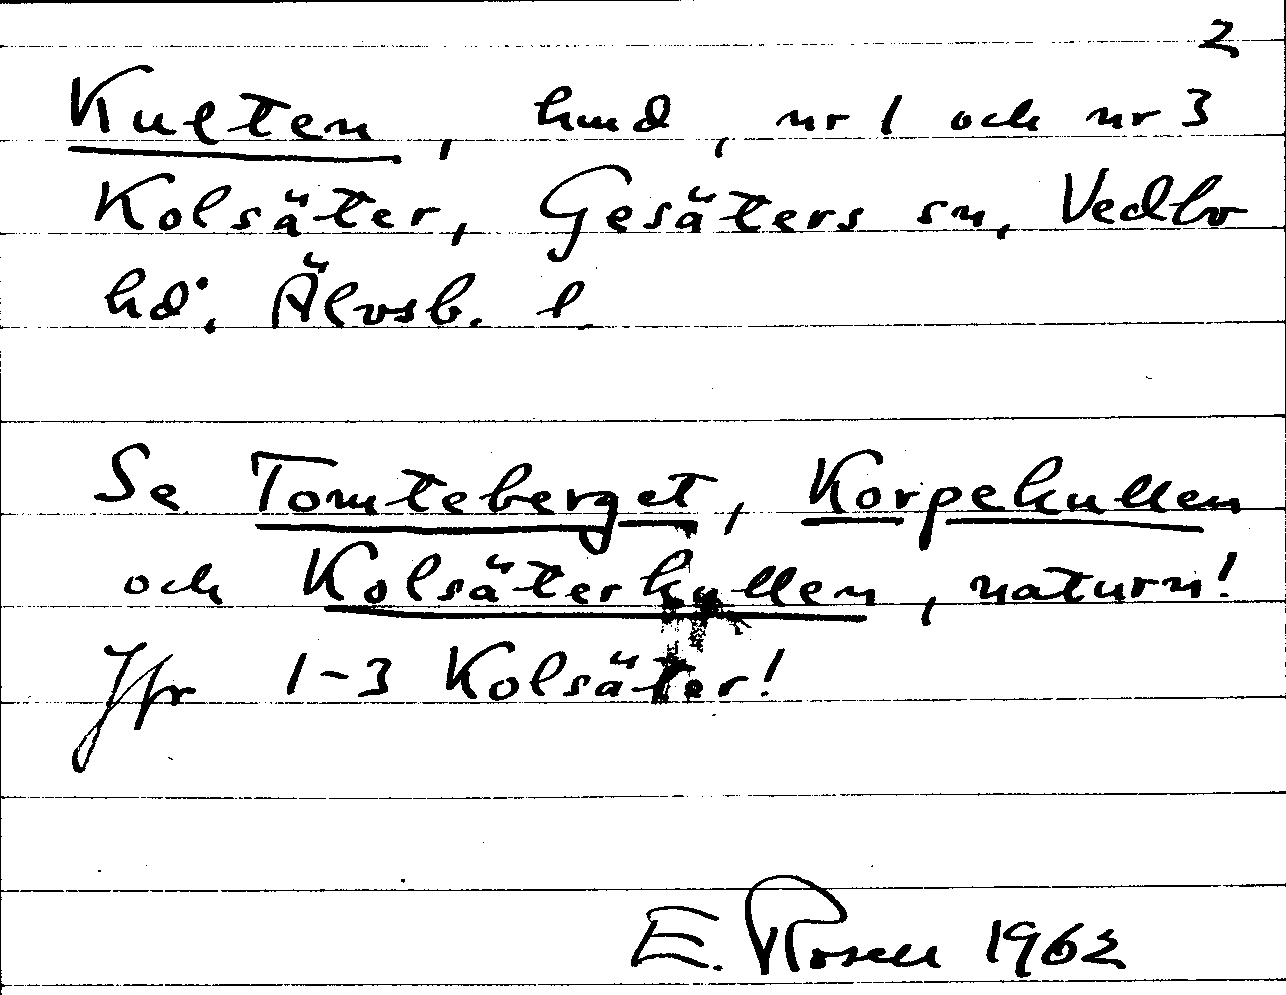 2
Kulten, hmd, nr 1 och nr 3
Kolsäter, Gesäters sn, Vedbo
hd, Älvsb. l
Se Tomteberget, Korpekullen
och Kolsäterkullen, naturn!
Jfr 1-3 Kolsäter!
E. Rosell 1962